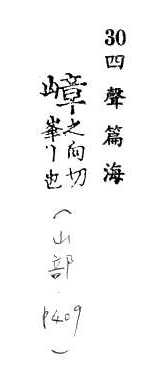 30 四聲篇海
嶂之向切
峯也
(山部 p409)